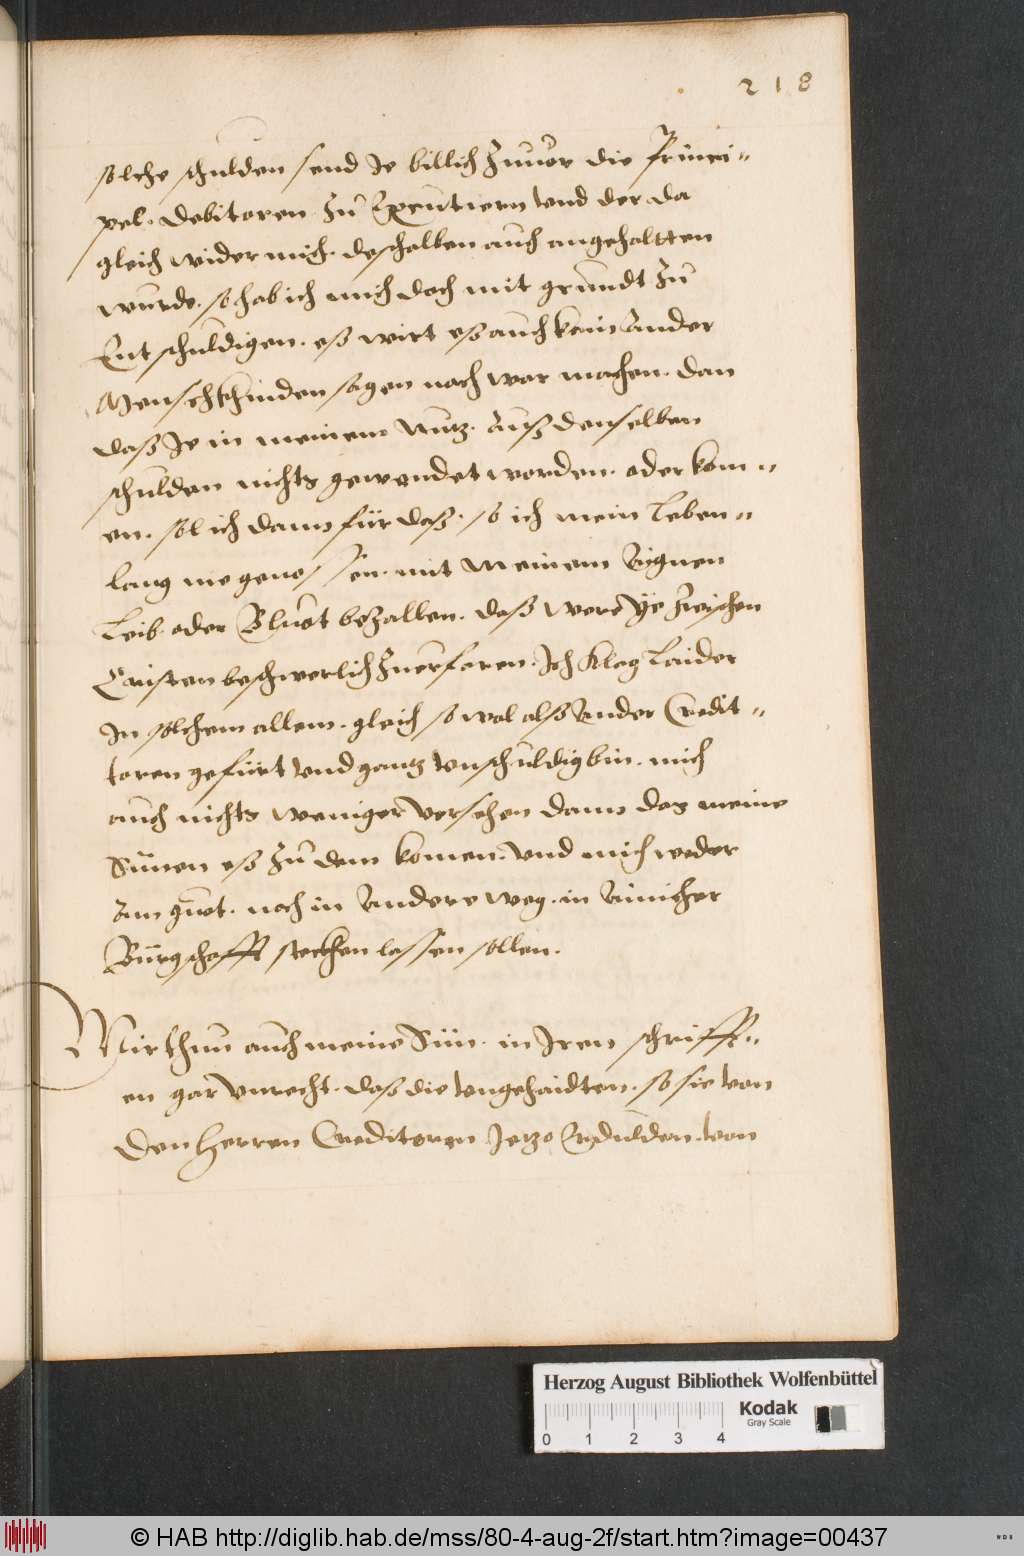 218
solche schulden send Je billich zuuor die Princi-
pel. Debitoren zu Execuutiern vnd der da
gleich wider mich. deshalben auch angehaltten
wurde. so hab ich mich doch mit grundt zu
Entschuldigen. eß wirt eß auch kain Ander
Menschkhinden sagen noch war machen. dan
daß Je in meinem Nutz. Auß denselben
schulden nichts gewendet worden. oder kom-
en. sol ich dann für daß. so ich mein Leben-
lang nie genossen. mit meinem Aignen
Leib. oder Bluot bezallen. daß were ye zwischen
Cristen beschwerlich zuerfaren. Ich klag Laider
In solchem allem. gleich so wol alß Ander Credit-
toren gefürt vnd gantz vnschuldig bin. mich
auch nichts weniger versehen dann das meine
Sünen eß zu dem komen. vnd mich weder
Am guot. noch in Andere weg. in Ainicher
Bürgschafft steckhen lassen sollen.
Mir thun auch meine Sün. in Iren schrifft-
en gar vnrecht. daß die vngehaidten. so sie von
Den Herren Creditoren Jetzo Erdulden. von
Herzog August Bibliothek Wolfenbüttel
Kodak
Gray Scale
0 1 2 3 4
© HAB http://diglib.hab.de/mss/80-4-aug-2f/start.htm?image=00437